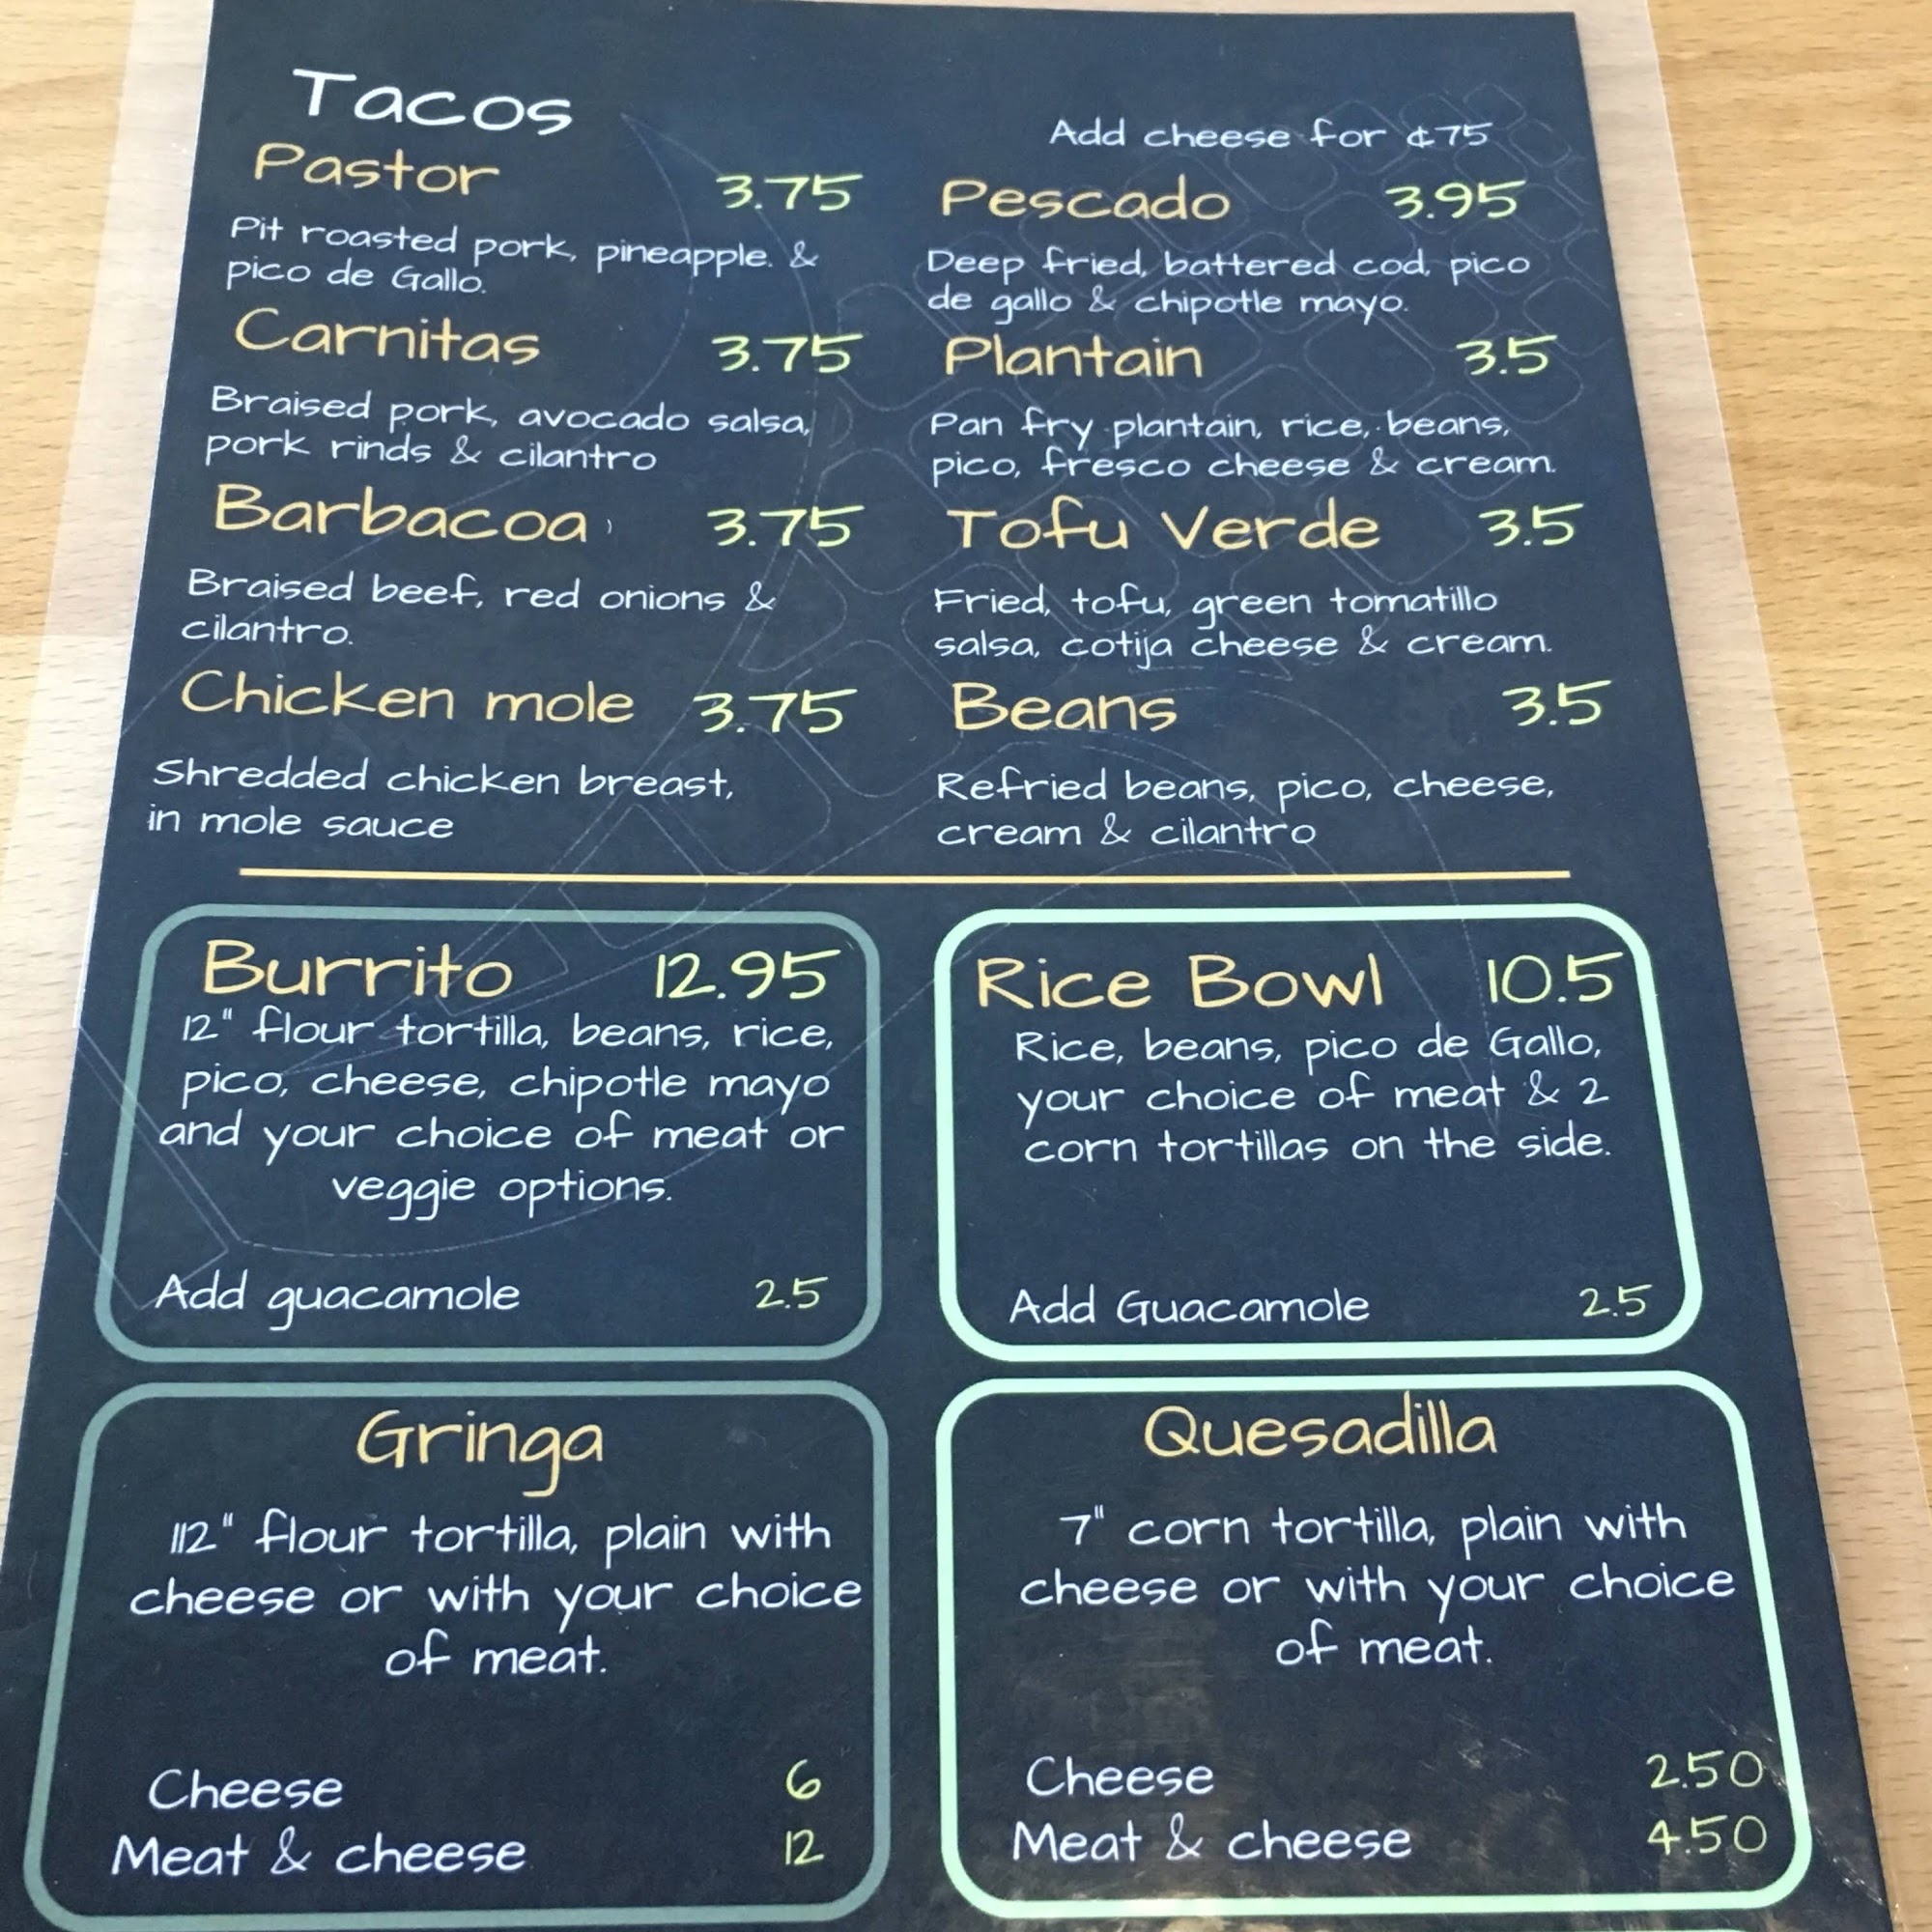 Tacos
Add cheese for ¢75
Pastor 3.75
Pit roasted pork, pineapple. &
pico de Gallo.
Carnitas 3.75
Braised pork, avocado salsa,
pork rinds & cilantro
Barbacoa 3.75
Braised beef, red onions &
cilantro.
Chicken mole 3.75
Shredded chicken breast,
in mole sauce
Pescado 3.95
Deep fried, battered cod, pico
de gallo & chipotle mayo.
Plantain 3.5
Pan fry plantain, rice, beans,
pico, fresco cheese & cream.
Tofu Verde 3.5
Fried, tofu, green tomatillo
salsa, cotija cheese & cream.
Beans 3.5
Refried beans, pico, cheese,
cream & cilantro
Burrito 12.95
12" flour tortilla, beans, rice,
pico, cheese, chipotle mayo
and your choice of meat or
veggie options.
Add guacamole 2.5
Rice Bowl 10.5
Rice, beans, pico de Gallo,
your choice of meat & 2
corn tortillas on the side.
Add Guacamole 2.5
Gringa
112" flour tortilla, plain with
cheese or with your choice
of meat.
Cheese 6
Meat & cheese 12
Quesadilla
7" corn tortilla, plain with
cheese or with your choice
of meat.
Cheese 2.50
Meat & cheese 4.50